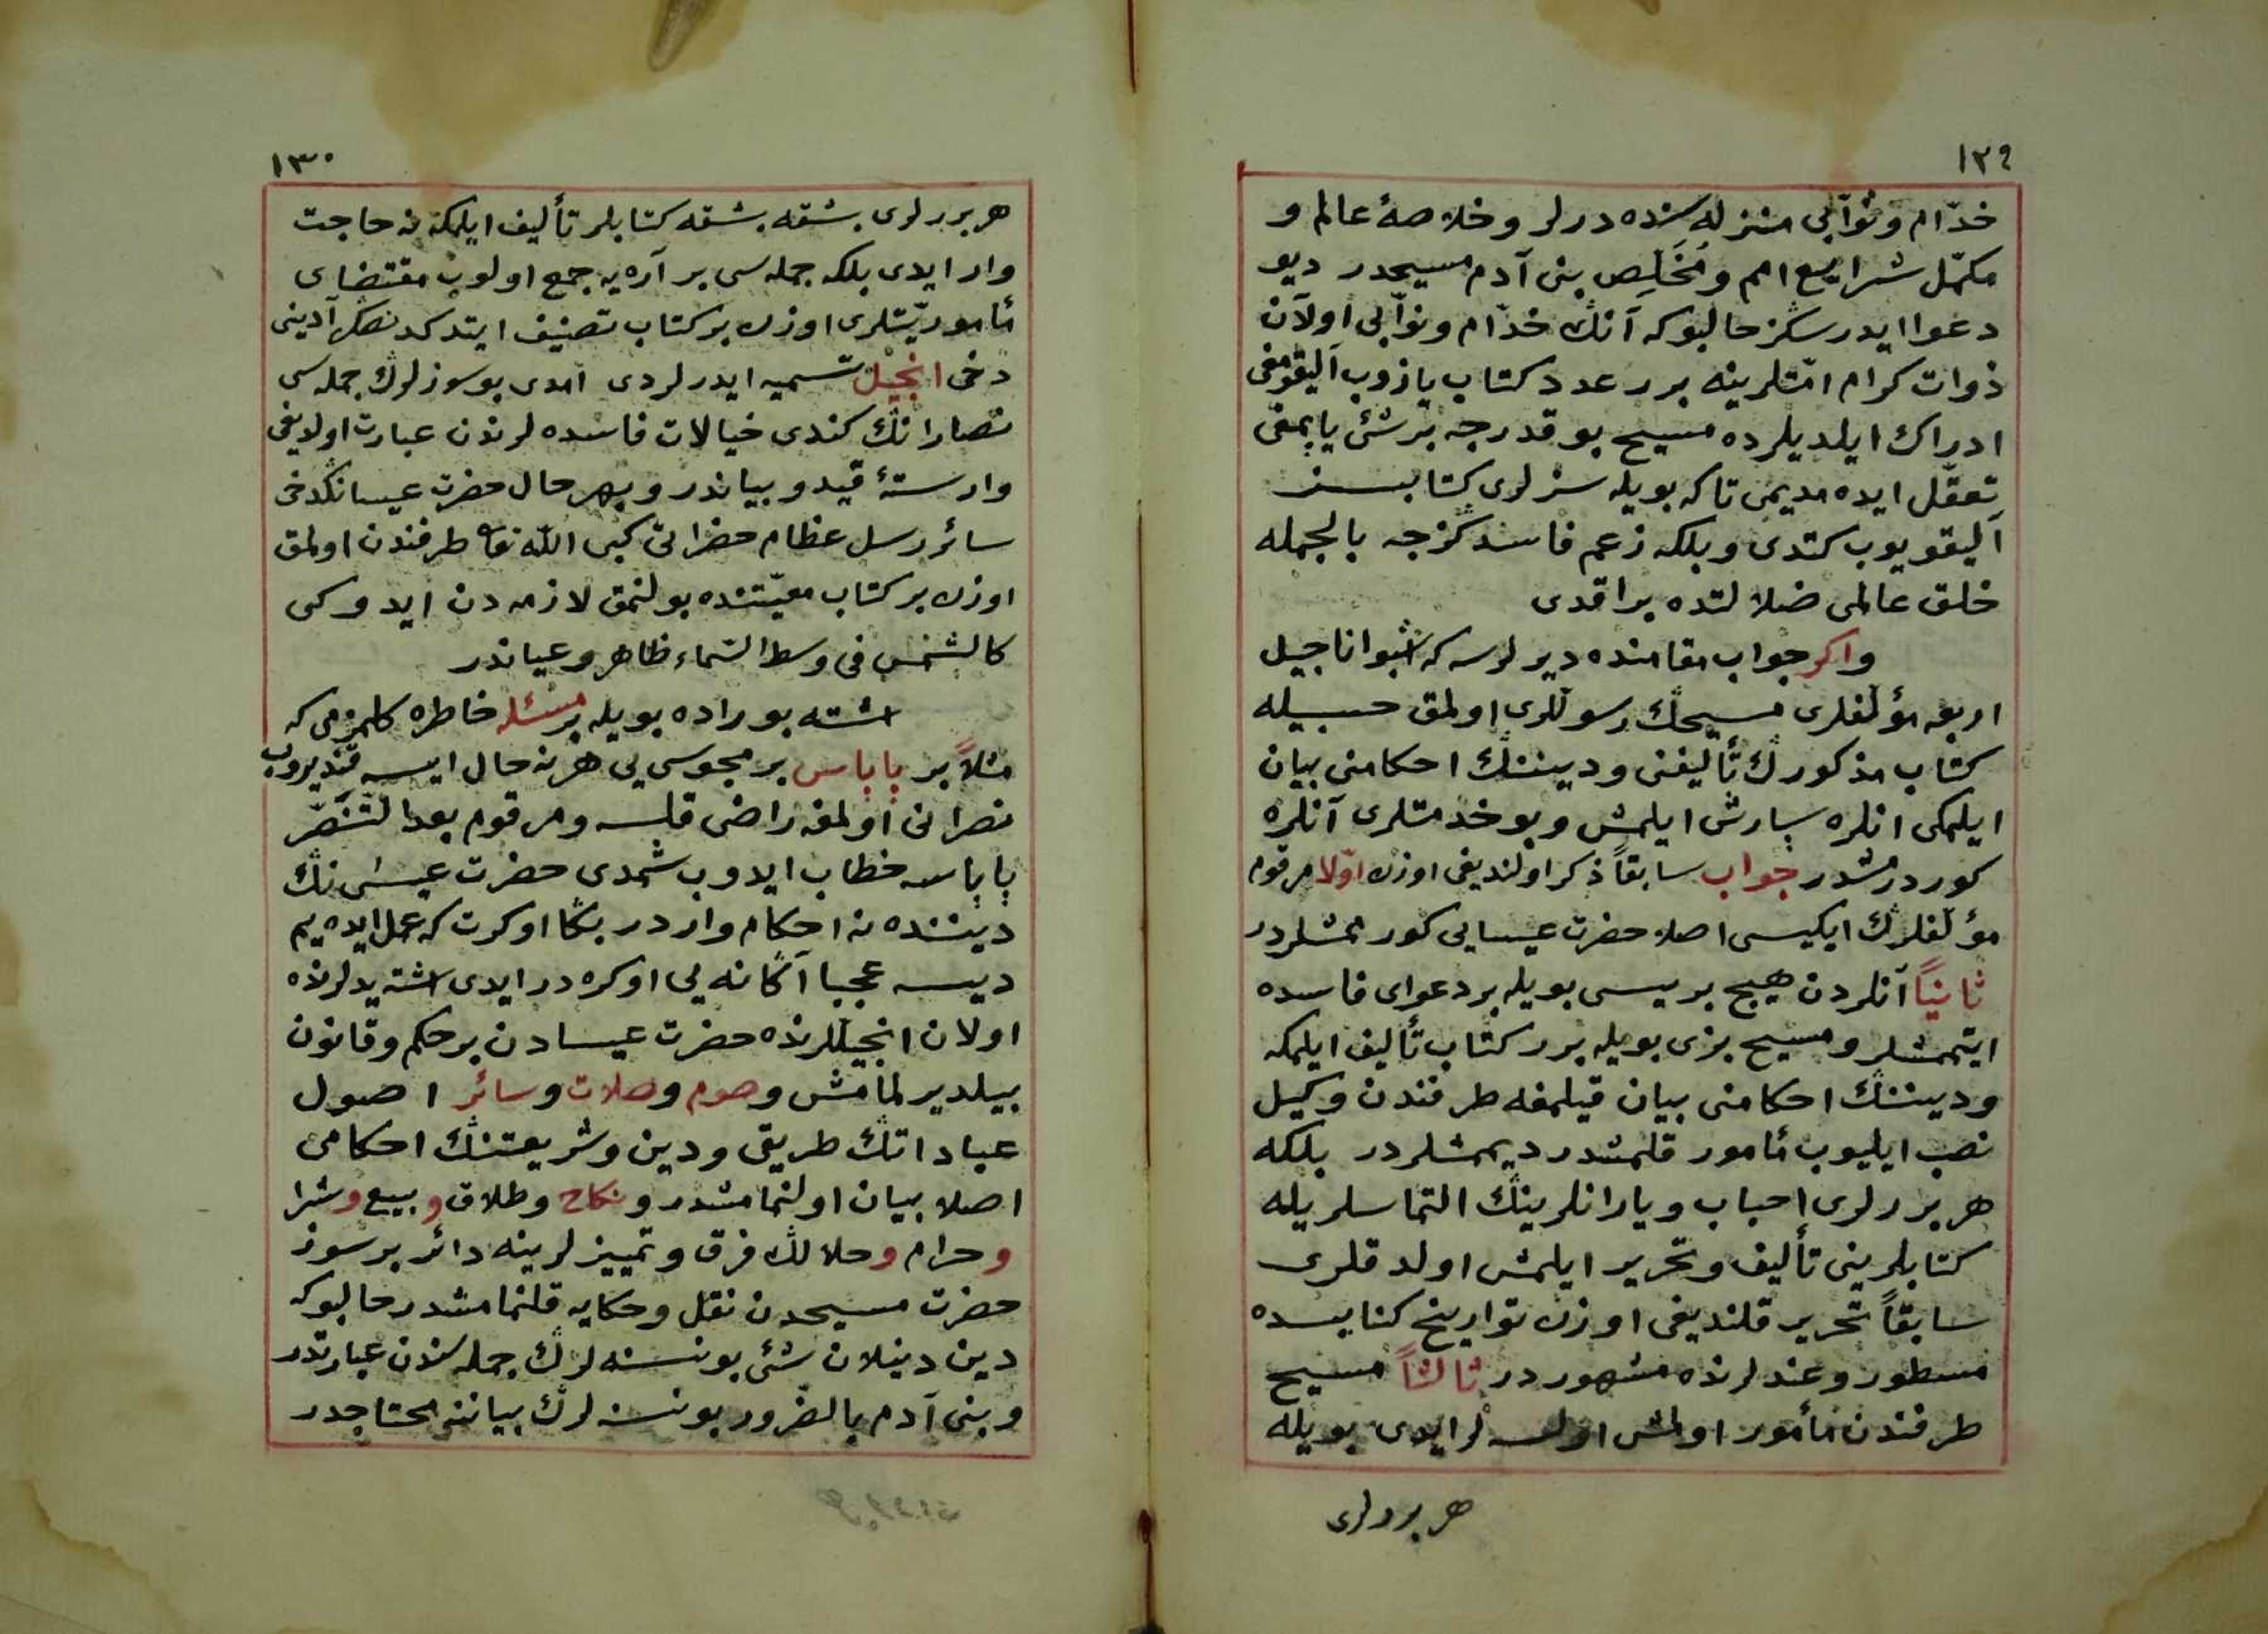 ١٢٩
خدّام ونوّابى منزله‌سنده‌درلر وخلاصهٔ عالم و
مكمّل شرايع امم ومُخَلِّص بنى آدم مسيحدر ديو
دعوا ايدرسكز حالبوكه آنڭ خدّام ونوّابى اولان
ذوات كرام امّتلرينه برر عدد كتاب يازوب اليقومغى
ادراك ايلديلرده مسيح بو قدرجه بر شئ يابمغى
تعقّل ايده‌مديمى تاكه بويله سزلرى كتابسز
اليقويوب كتدى وبلكه زعم فاسدكزجه بالجمله
خلق عالمى ضلالتده براقدى
واكر جواب مقامنده ديرلرسه كه اشبو اناجيل
اربعه مؤلّفلرى مسيحڭ رسوللرى اولمق حسبيله
كتاب مذكورڭ تأليفنى ودينڭ احكامنى بيان
ايلمكى انلره سپارش ايلمش وبو خدمتلرى آنلره
كوردرمشدر جواب سابقاً ذكر اولنديغى اوزره اوّلا مرقوم
مؤلّفلرڭ ايكيسى اصلا حضرت عيسايى كورممشلردر
ثانيًا آنلردن هيچ بريسى بويله بر دعواى فاسده
ايتممشلر ومسيح بزى بويله برر كتاب تأليف ايلمكه
ودينڭ احكامنى بيان قيلمغه طرفندن وكيل
نصب ايليوب مأمور قلمشدر ديممشلردر بلكه
هر بررلرى احباب ويارانلرينڭ التماسلريله
كتابلرينى تأليف وتحرير ايلمش اولدقلرى
سابقاً تحرير قلنديغى اوزره تواريخ كنايسده
مسطور وعندلرنده مشهوردر ثالثاً مسيح
طرفندن مأمور اولمش اولسه‌لر ايدى بويله
هر بررلرى
١٣٠
هر بررلرى بشقه بشقه كتابلر تأليف ايلمكه نه حاجت
وار ايدى بلكه جمله‌سى بر آره‌يه جمع اولوب مقتضاى
مأموريّتلرى اوزره بر كتاب تصنيف ايتدكدنصكره آدينى
دخى انجيل تسميه ايدرلردى امدى بو سوزلرڭ جمله‌سى
نصارانڭ كندى خيالات فاسده‌لرندن عبارت اولديغى
وارستهٔ قيد وبياندر وبهر حال حضرت عيسانڭدخى
سائر رسل عظام حضراتى كبى اللّه تعالى طرفندن اولمق
اوزره بر كتاب معيّتنده بولنمق لازمه‌دن ايدوكى
كالشّمس فى وسط السّماء ظاهر وعياندر
اشته بوراده بويله بر مسئله خاطره كلمزمى كه
مثلاً بر پاپاس بر مجوسى‌يى هر نه حال ايسه قنديروب
نصرانى اولمغه راضى قلسه ومرقوم بعد التَّنَصُّر
پاپاسه خطاب ايدوب شمدى حضرت عيسىٰ‌نڭ
ديننده نه احكام واردر بڭا اوكرت كه عمل ايده‌يم
ديسه عجبا آڭا نه‌يى اوكره‌در ايدى اشته يدلرنده
اولان انجيللرنده حضرت عيسادن بر حكم وقانون
بيلديرلمامش وصوم وصلات وسائر اصول
عباداتڭ طريقى ودين وشريعتنڭ احكامى
اصلا بيان اولنمامشدر ونكاح وطلاق وبيع وشرا
وحرام وحلالڭ فرق وتمييزلرينه دائر بر سوز
حضرت مسيحدن نقل وحكايه قلنمامشدر حالبوكه
دين دينلان شئ بو نسنه‌لرڭ جمله‌سندن عبارتدر
وبنى آدم بالضّرور بو نسنه‌لرڭ بياننه محتاجدر